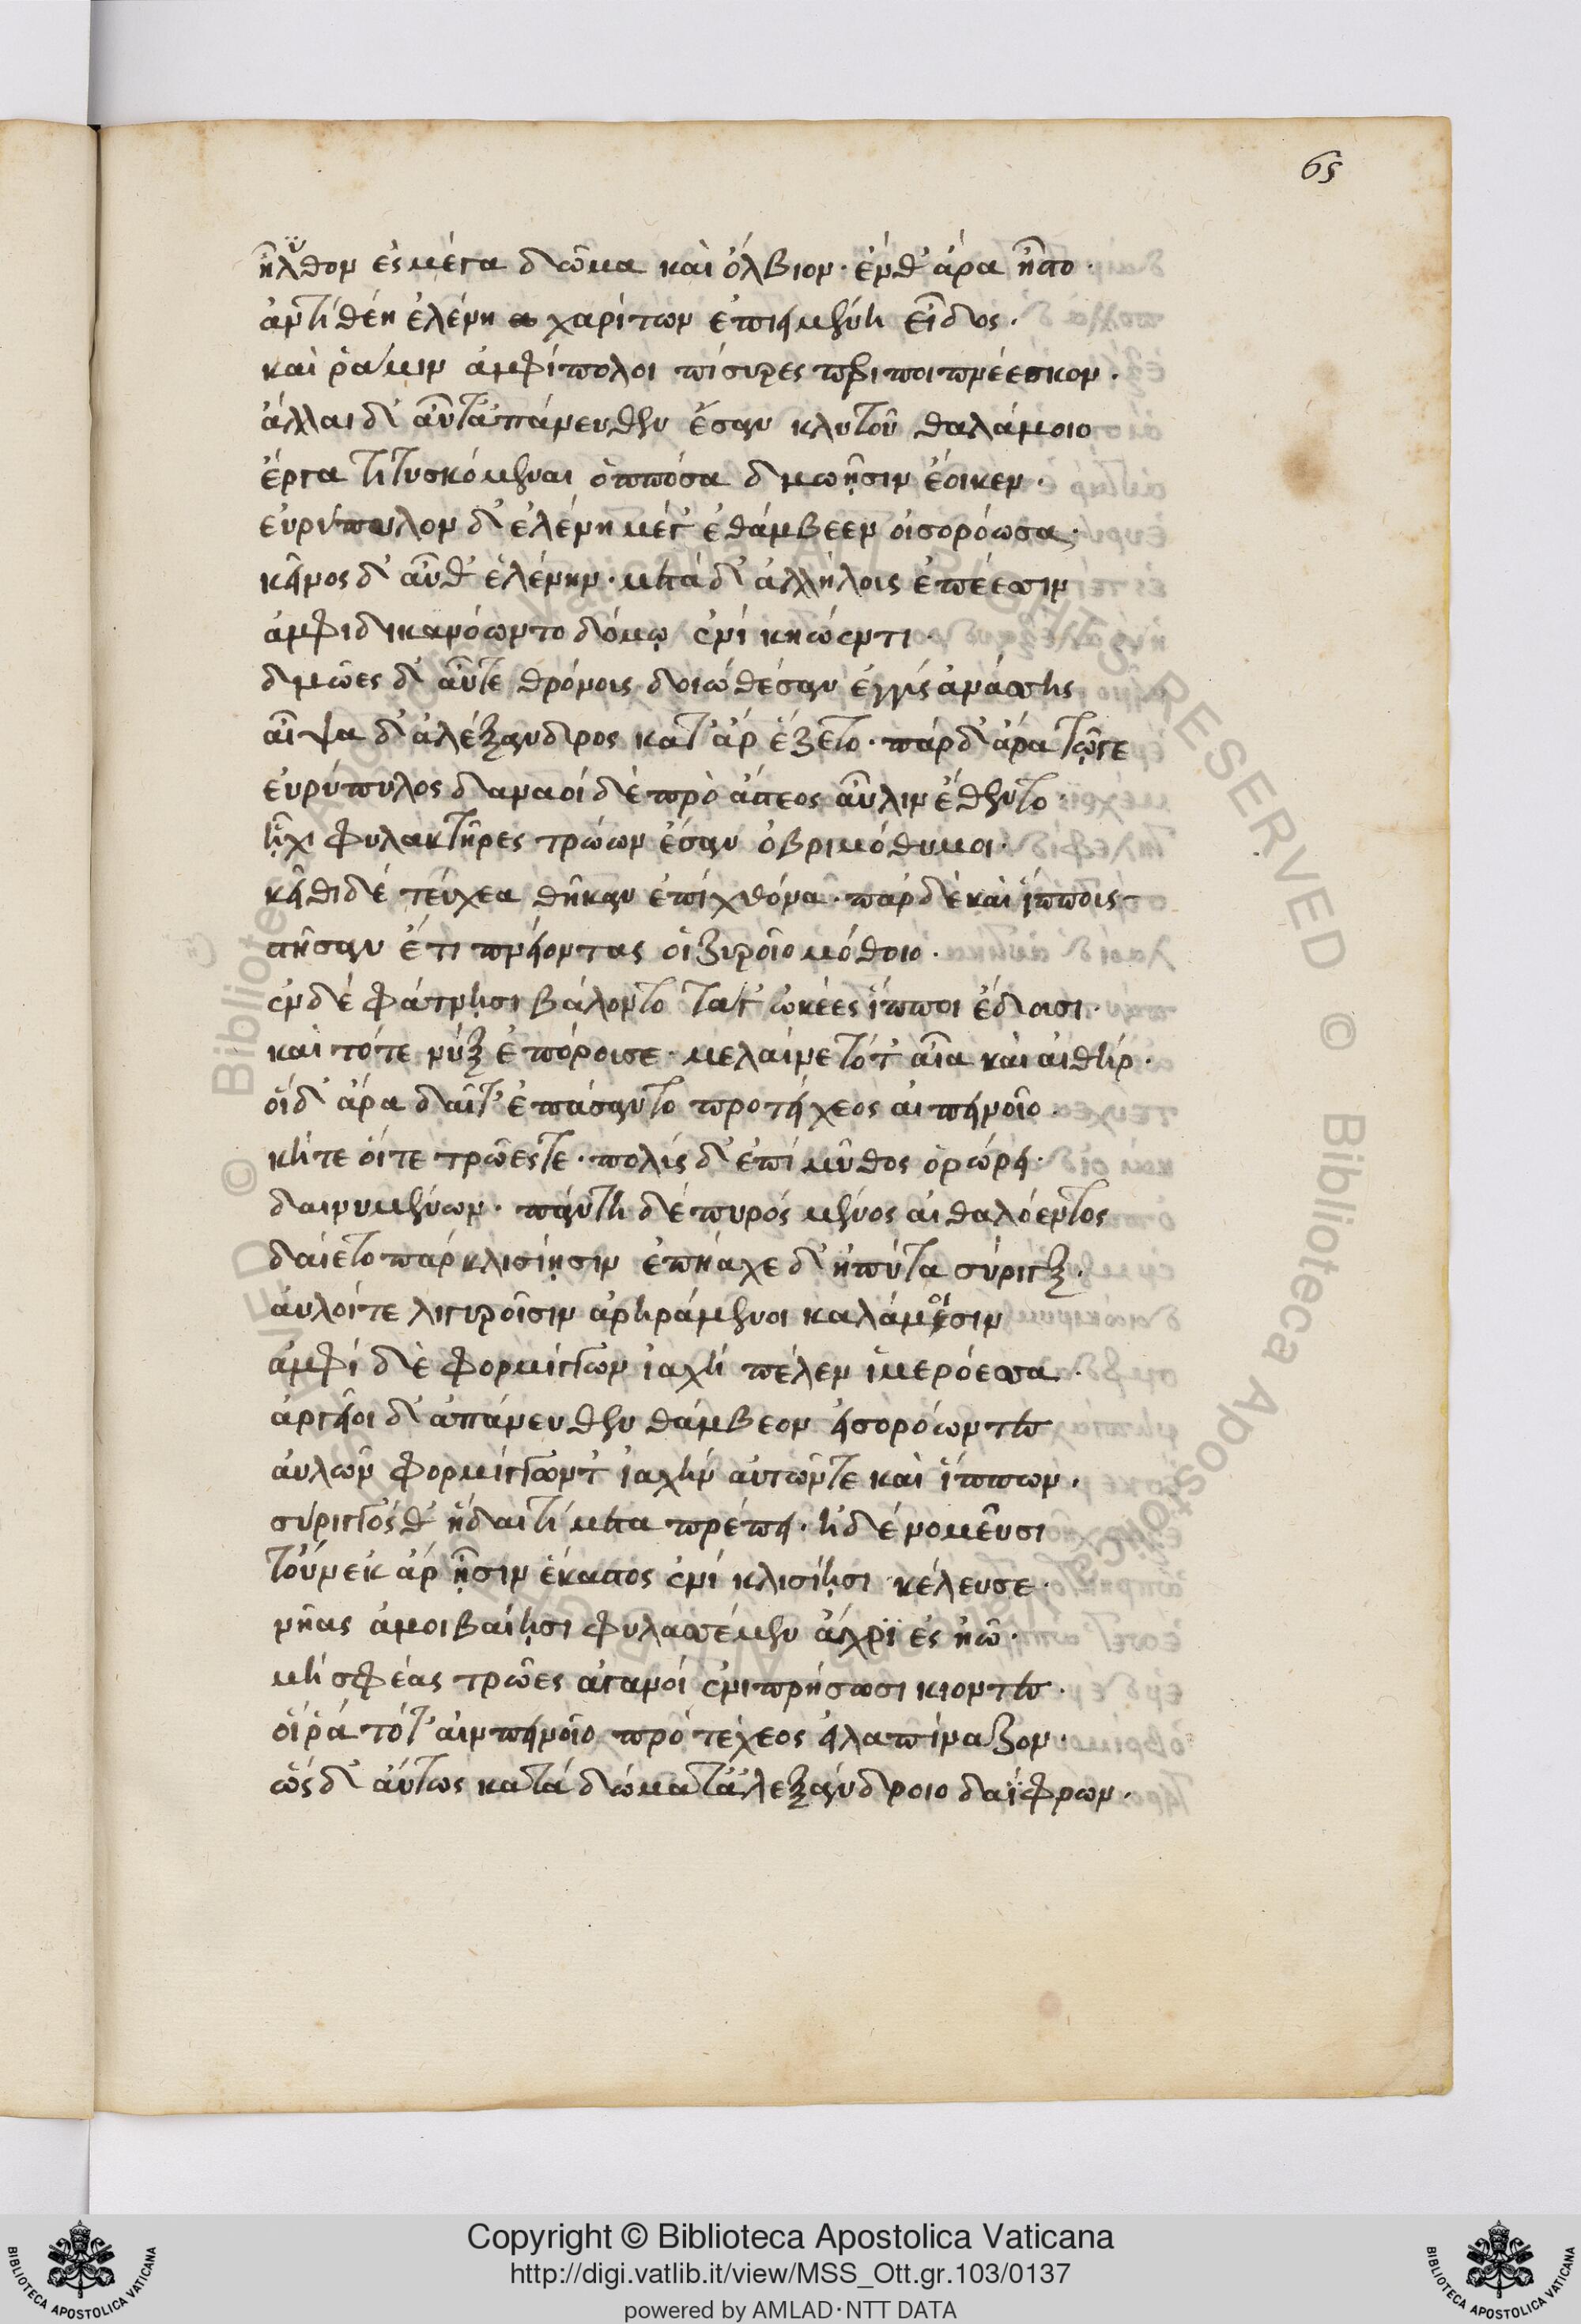 65
ἤλυθον ἐς μέγα δῶμα καὶ ὄλβιον· ἔνθ' ἄρα ἧστο·
ἀντιθέη ἑλένη χαρίτων ἐπιειμένη εἶδος·
καί ῥά μιν ἀμφίπολοι πίσυρες περιποιπνέεσκον·
ἄλλαι δ' αὖτ' ἀπάνευθεν ἔσαν κλυτοῦ θαλάμοιο
ἔργα τιτυσκόμεναι ὁππόσα δμωῇσιν ἔοικεν·
εὐρύπυλον δ' ἑλένη μέγ' ἐθάμβεεν εἰσορόωσα·
κεῖνος δ' αὖθ' ἑλένην· μετὰ δ' ἀλλήλοις ἐπέεσσιν
ἀμφιδικανόωντο δόμῳ ἐνὶ κηώεντι·
δμῶες δ' αὖτε θρόνοις δοιὼ θέσαν ἐγγὺς ἀνάσσης
αἶψα δ' ἀλέξανδρος κατ' ἄρ ἕζετο· πὰρ δ' ἄρα τῷγε
εὐρύπυλος δαναοὶ δὲ πρὸ ἄστεος αὖλιν ἔθεντο·
ἧχι φυλακτῆρες τρώων ἔσαν ὀβριμόθυμοι·
κεῖθι δὲ τεύχεα θῆκαν ἐπὶ χθόνα· πὰρ δὲ καὶ ἵππους
στῆσαν ἔτι πνείοντας ὀιζυροῖο μόθοιο·
ἐν δὲ φάτνῃσι βάλοντο τάτ' ὠκέες ἵπποι ἔδουσι·
καὶ τότε νὺξ ἐπόρουσε· μελαίνετο τ' αἶα καὶ αἰθήρ·
οἱ δ' ἄρα δαῖτ' ἐπάσαντο προ τείχεος αἰπεινοῖο·
κήτειοί τε τρῶές τε· πολὺς δ' ἐπὶ μῦθος ὀρώρει·
δαινυμένων· πάντη δὲ πυρὸς μένος αἰθαλόεντος
δαίετο πὰρ κλισίῃσιν ἐπήαχε δ' ἠπύτα σύριγξ·
αὐλοί τε λιγυροῖσιν ἀρηράμενοι καλάμοισιν
ἀμφὶ δὲ φορμίγγων ἰαχὴ πέλεν ἱμερόεσσα·
ἀργεῖοι δ' ἀπάνευθεν θάμβεον εἰσορόωντες
αὐλῶν φορμίγγων τ' ἰαχὴν αὐτῶν τε καὶ ἵππων·
σύριγγός θ' ἣ δαιτὶ μετα πρέπει· ἠδὲ νομεῦσι
τούνεκ ἄρ ᾗσιν ἕκαστος ἐνὶ κλισίῃσι κέλευσε·
νῆας ἀμοιβαίῃσι φυλασσέμεν ἄχρϊ ἐς ἠῶ·
μή σφέας τρῶες ἀγαυοὶ ἐνιπρήσωσι κιοντες·
οἵ ῥα τότ' αἰνπεινοῖο πρὸ τείχεος εἰλαπίναζον·
ὣς δ' αὔτως κατὰ δώματ' ἀλεξάνδροιο δαΐφρων·
Copyright © Biblioteca Apostolica Vaticana
http://digi.vatlib.it/view/MSS_Ott.gr.103/0137
powered by AMLAD·NTT DATA